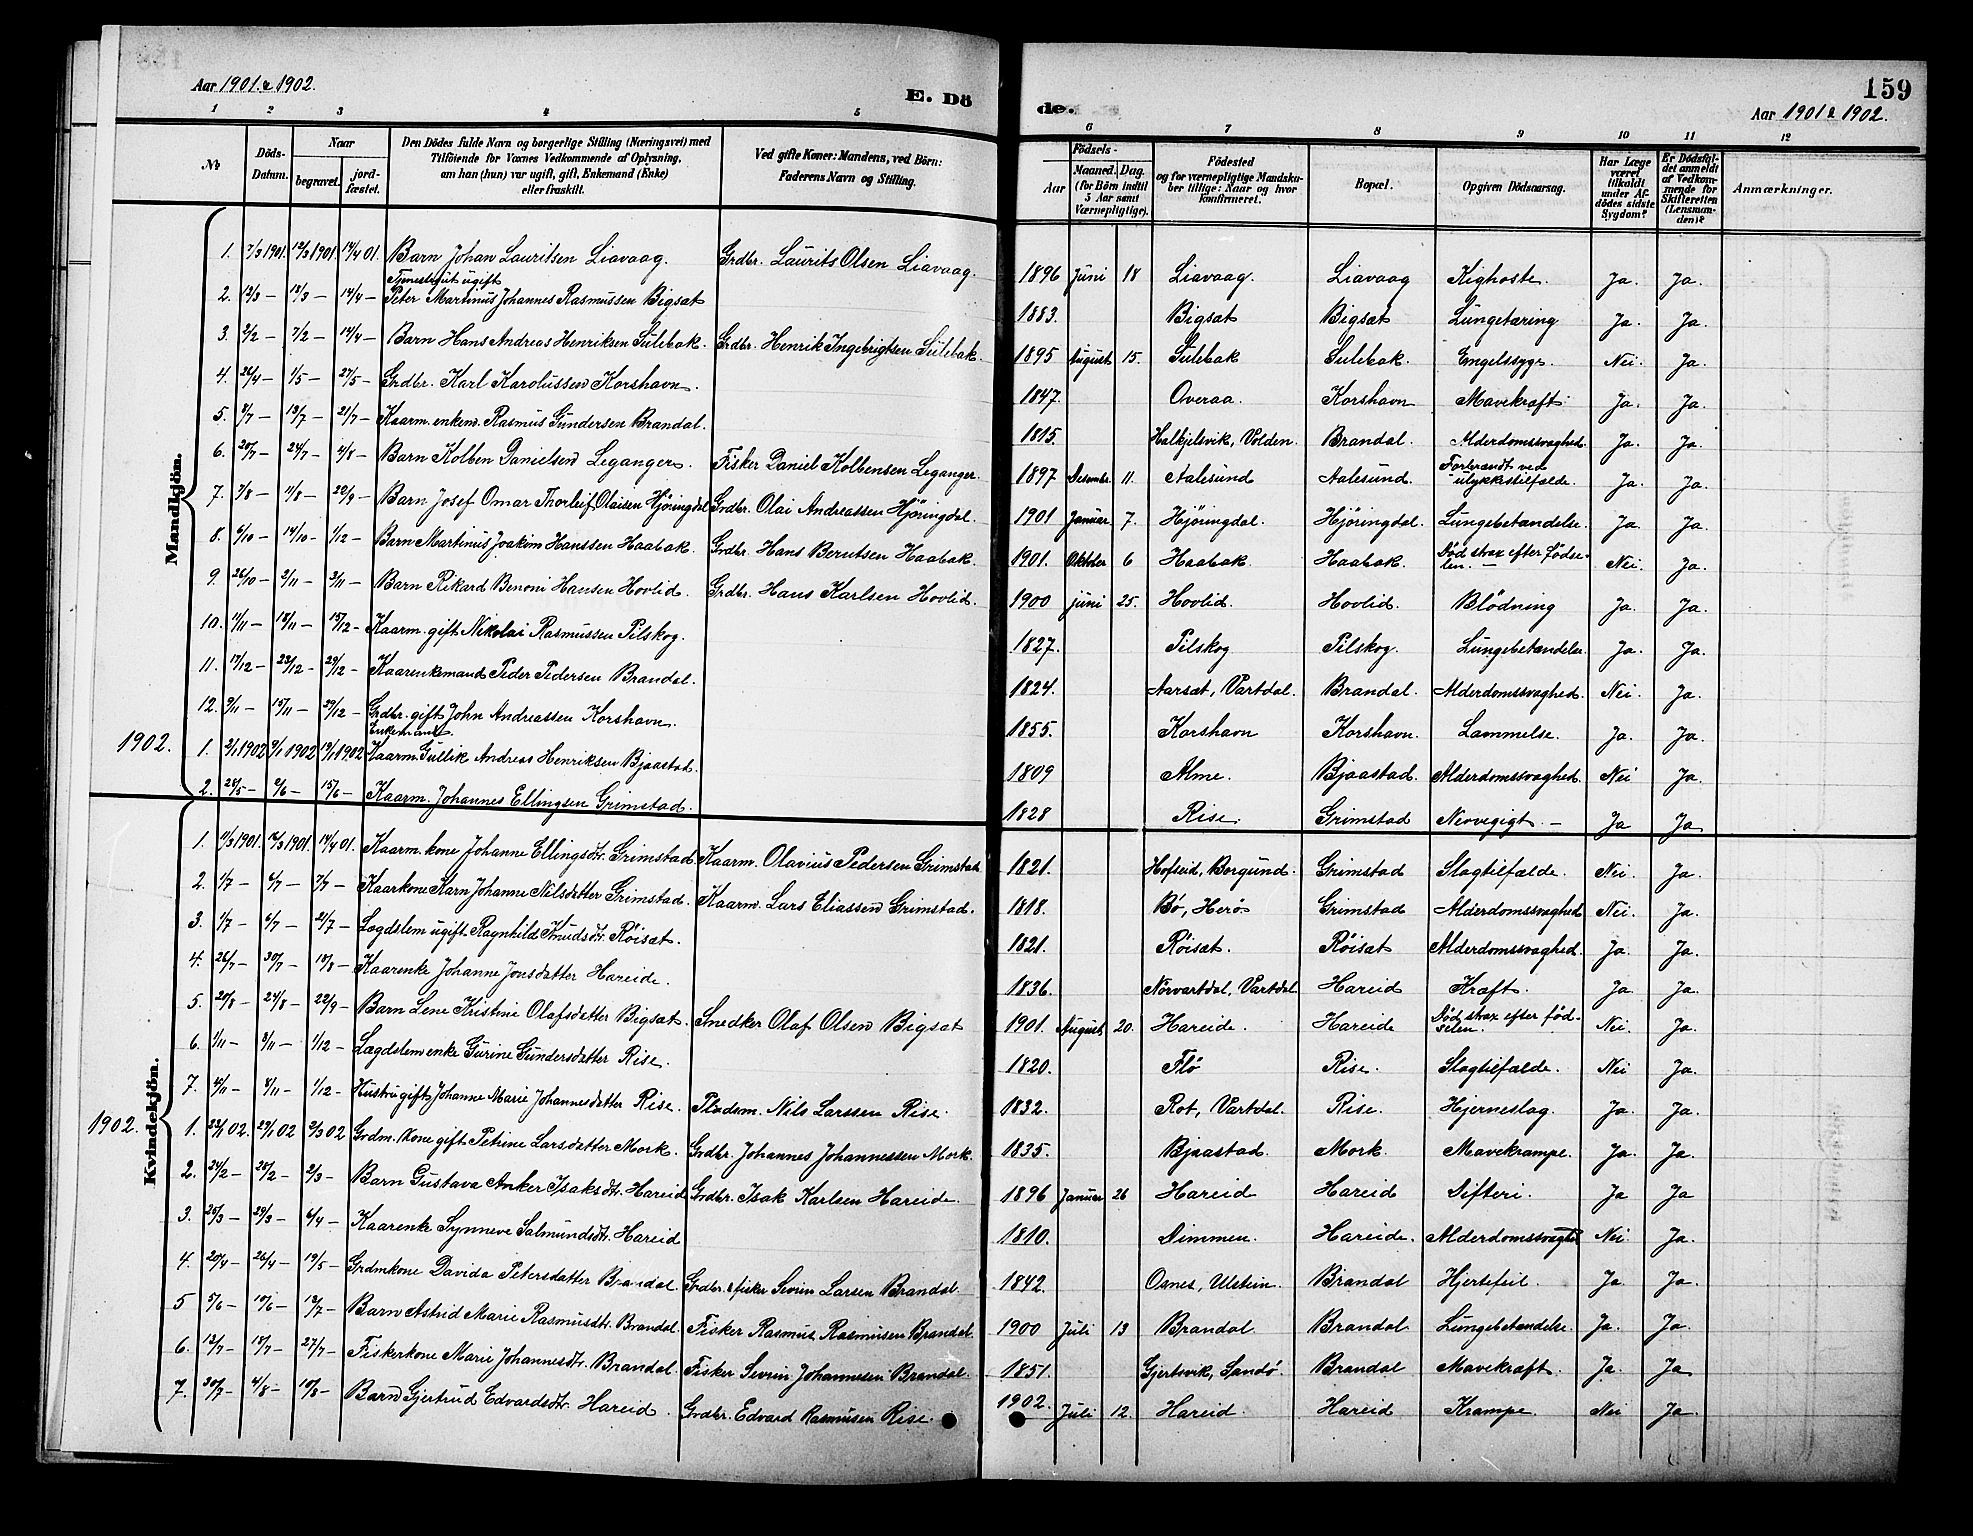 159
Aar 1901 & 1902.
E. Dö
de.
Aar 1901 & 1902.
1 2 3 4 5 6 7 8 9 10 11 12
No
Döds-Datum.
Naar
begravet.
jordfæstet.
Den Dödes fulde Navn og borgerlige Stilling (Næringsvei) med
Tilföiende for Voxnes Vedkommende af Oplysning,
om han (hun) var ugift, gift, Enkemand (Enke)
eller fraskilt.
Ved gifte Koner: Mandens, ved Börn:
Faderens Navn og Stilling.
Födsels-
Aar
Maaned. Dag.
(for Börn indtil
5 Aar samt
Værnepligtige).
Födested
og for værnepligtige Mandska-
ber tillige: Naar og hvor
konfirmeret.
Bopæl.
Opgiven Dödsaarsag.
Har Læge
været
tilkaldt
under Af-
dödes sidste
Sygdom?
Er Dödsfal-
det anmeldt
af Vedkom-
mende for
Skifteretten
(Lensman-
den)?
Anmærkninger.
Mandkjön.
1. 7/3 1901. 12/3 1901. 14/4 01. Barn Johan Lauritsen Liavaag. Grdbr. Laurits Olsen Liavaag. 1896 Juni 18 Liavaag. Liavaag Kighoste. Ja. Ja.
Tjenestegut ugift
2. 13/3 – 18/3 – 14/4 – Peter Martinus Johannes Rasmussen Bigsæt 1883. Bigsæt Bigsæt Lungetæring Ja. Ja.
3. 2/2 – 7/2 – 14/4 – Barn Hans Andreas Henriksen Sulebak. Grdbr. Henrik Ingebrigtsen Sulebak. 1895 August 15. Sulebak Sulebak. Engelssyge Nei. Ja.
4. 26/4 – 1/5 – 27/5 – Grdbr. Karl Karolussen Korshavn. 1847. Overaa. Korshavn Mavekræft. Ja. Ja.
5. 8/7 – 13/7 – 21/7 – Kaarm. enkem. Rasmus Gundersen Brandal. 1815. Halkjelsvik, Volden. Brandal. Alderdomssvaghed. Ja. Ja.
6. 20/7 – 24/7 – 4/8 – Barn Kolben Danielsen Leganger. Fisker Daniel Kolbensen Leganger. 1897 Desembr. 11. Aalesund Aalesund. Forbrændt ved ulykkestilfælde. Ja. Ja.
7. 7/8 – 11/8 – 22/9 – Barn Josef Omar Thorleif Olaisen Hjøringdal Grdbr. Olai Andreassen Hjøringdal. 1901 Januar 7. Hjøringdal. Hjøringdal. Lungebetændelse. Ja Ja.
8. 6/10 – 14/10 – 1/12 – Barn Martinus Joakim Hanssen Haabak. Grdbr. Hans Berntsen Haabak. 1901. Oktober 6 Haabak. Haabak. Død strax efter fødselen. – Nei. Ja.
9. 26/10 – 2/11 – 3/11 – Barn Rikard Benoni Hansen Hovlid. Grdbr. Hans Karlsen Hovlid. 1900 juni 25. Hovlid. Hovlid. Blödning Ja. Ja.
10. 11/11 – 18/11 – 15/12 – Kaarm. gift Nikolai Rasmussen Pilskog. 1827. Pilskog Pilskog. Lungebetændelse Ja. Ja.
11. 17/12 – 23/12 – 29/12 – Kaarenkemand Peder Pedersen Brandal. 1824. Aarsæt, Vartdal. Brandal. Alderdomssvaghed. Nei. Ja.
12. 9/11 – 15/11 – 29/12 – Grdbr. gift John Andreassen Korshavn. 1855. Korshavn Korshavn. Lammelse. Ja. Ja.
Enkemand
1902. 1. 2/1 1902 9/1 1902 19/1 1902 Kaarm. Gullik Andreas Henriksen Bjaastad. 1809 Alme. Bjaastad. Alderdomssvaghed Nei Ja.
2. 28/5 – 6/6 – 15/6 – Kaarm. Johannes Ellingsen Grimstad. 1828 Rise. Grimstad Nervegigt. – Ja Ja
Kvindekjön.
1. 11/3 1901. 16/3 1901. 14/4 01. Kaarm. kone Johanne Ellingsdtr. Grimstad Kaarm. Olavius Pedersen Grimstad 1821. Hofseid, Borgund. Grimstad Slagtilfælde. Nei. Ja.
2. 1/7 – 6/7 – 7/7 – Kaarkone Karn Johanne Nilsdatter Grimstad. Kaarm. Lars Eliassen Grimstad. 1818. Bø, Herø. Grimstad Alderdomssvaghed Nei. Ja.
3. 1/7 – 6/7 – 21/7 – Lægdslem ugift Ragnhild Knudsdtr. Røisæt. 1821. Røisæt. Røisæt Alderdomssvaghed. Ja. Ja.
4. 26/7 – 30/7 – 18/8 – Kaarenke Johanne Jonsdatter Hareide. 1836. Nörvartdal, Vartdal. Hareid Kræft. Ja Ja.
5. 20/8 – 24/8 – 22/9 – Barn Lene Kristine Olafsdatter Bigsæt. Snedker Olaf Olsen Bigsæt 1901. August 20. Hareide. Hareide Død strax efter fødselen. – Nei. Ja.
6. 1/11 – 8/11 – 1/12 – Lægdslem enke Gurine Gundersdatter Rise. 1820. Flø Rise. Slagtilfælde. Nei Ja.
7. – 8/11 – 1/12 – Hustru gift Johanne Marie Johannesdatter Rise. Pladsm. Nils Larssen Rise. 1832. Rot, Vartdal. Rise. Hjerneslag. Ja. Ja.
1902. 1. 23/1 02. 29/1 02 2/3 02 Grdm. kone gift Petrine Larsdatter Mork. Grdbr. Johannes Johannessen Mork. 1835. Bjaastad. Mork. Mavekrampe. Ja. Ja.
2. 24/2 – 28/2 – 2/3 – Barn Gustava Anker Isaksdtr. Hareid Grdbr. Isak Karlsen Hareide. 1896 Januar 26 Hareid Hareid Difteri. Ja Ja
3. 25/3 – 29/3 – 6/4 – Kaarenke Synneve Salmundsdtr. Hareid 1810. Dimmen. Hareide. Alderdomssvaghed Nei Ja.
4. 20/4 – 26/4 – 19/5 – Grdmkone Davida Petersdatter Brandal. Grdbr. & fisker Sevrin Larsen Brandal. 1842. Osnes, Ulstein. Brandal Hjertefeil. Ja. Ja.
5 5/6 – 10/6 – 13/7 – Barn Astrid Marie Rasmusdtr. Brandal. Fisker Rasmus Rasmusen Brandal. 1900 Juli 13 Brandal Brandal. Lungebetændelse. Ja. Ja.
6. 13/7 – 18/7 – 27/7 – Fiskerkone Marie Johannesdtr. Brandal. Fisker Sevrin Johannesen Brandal. 1851. Gjertsvik, Sandö. Brandal Mavekræft. Ja. Ja
7. 30/7 – 4/8 – 10/8 – Barn Gjertrud Edvardsdtr. Hareid. Grdbr. Edvard Rasmusen Rise. 1902. Juli 12. Hareid. Hareid Krampe. Nei Ja.